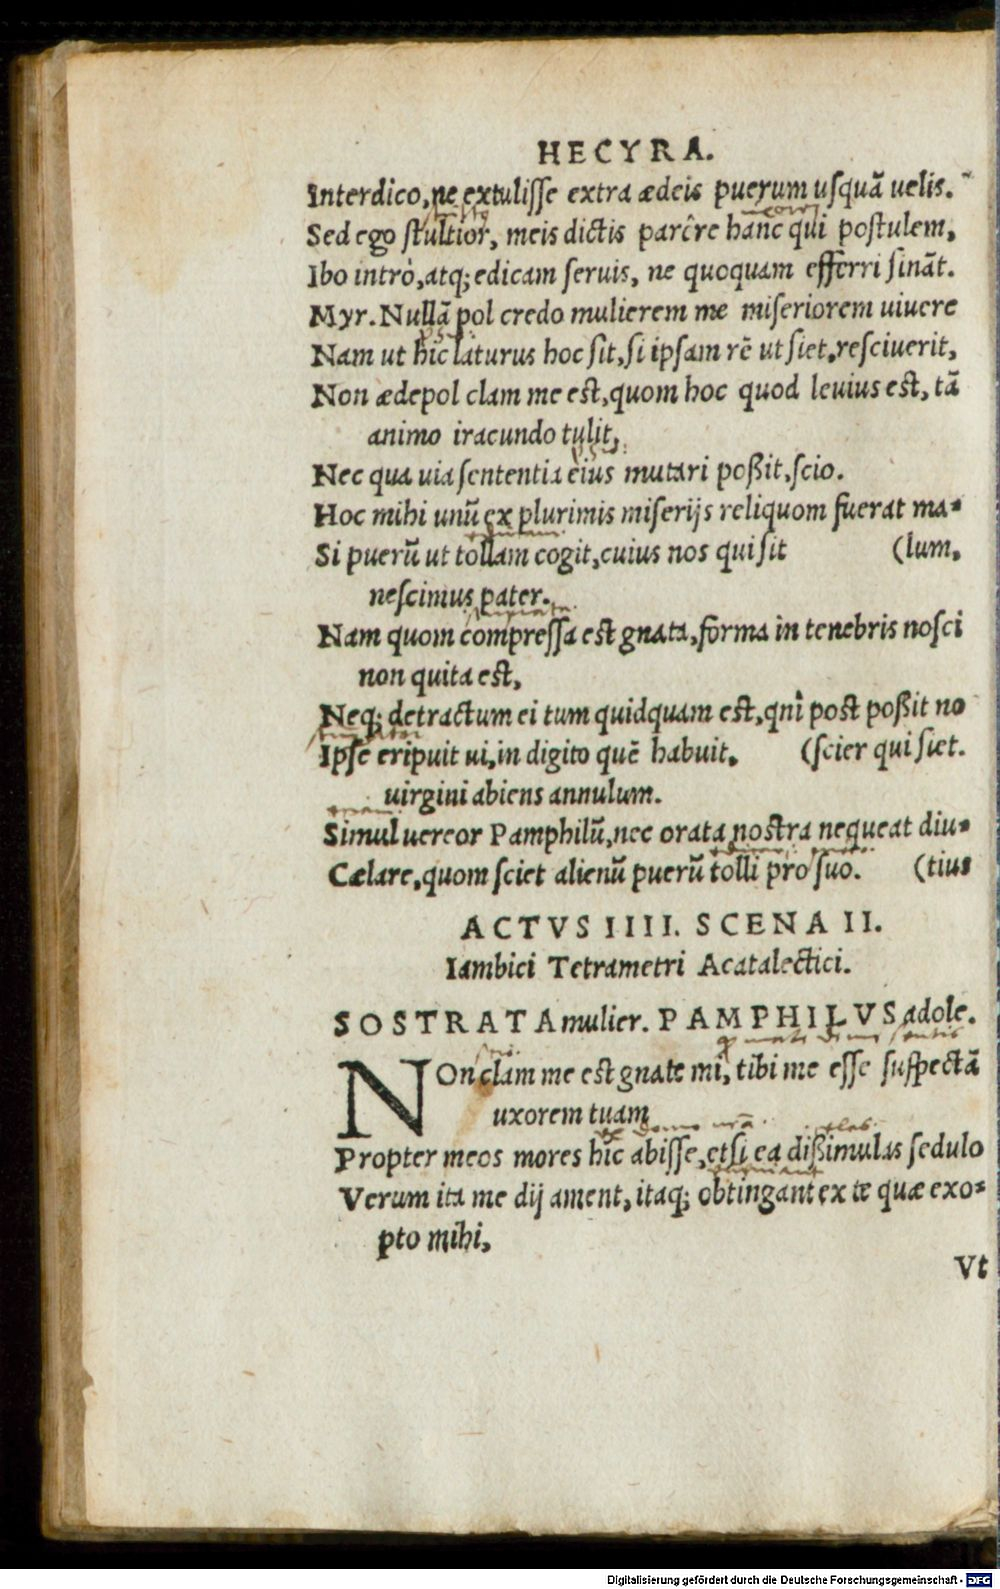 HECYRA.
Interdico, ne extulisse extra ædeis puerum usquā uelis.
Sed ego stultior, meis dictis parêre hanc qui postulem,
Ibo intrò, atq; edicam seruis, ne quoquam efferri sināt.
Myr. Nullā pol credo mulierem me miseriorem uiuere
Nam ut hic laturus hoc sit, si ipsam rē ut siet, resciuerit,
Non ædepol clam me est, quom hoc quod leuius est, tā
animo iracundo tulit,
Nec qua uia sententia eius mutari poßit, scio.
Hoc mihi unū ex plurimis miserijs reliquom fuerat ma-
Si puerū ut tollam cogit, cuius nos qui sit (lum,
nescimus pater.
Nam quom compressa est gnata, forma in tenebris nosci
non quita est,
Neq; detractum ei tum quidquam est, qui post poßit no
Ipse eripuit ui, in digito quē habuit, (scier qui siet.
uirgini abiens annulum.
Simul uereor Pamphilū, nec orata nostra nequeat diu-
Cælare, quom sciet alienū puerū tolli pro suo. (tius
ACTVS IIII. SCENA II.
Iambici Tetrametri Acatalectici.
SOSTRATA mulier. PAMPHILVS adole.
NOn clam me est gnate mi, tibi me esse suspectā
uxorem tuam
Propter meos mores hic abisse, etsi ea dißimulas sedulo
Verum ita me dij ament, itaq; obtingant ex te quæ exo-
pto mihi,
Vt
Digitalisierung gefördert durch die Deutsche Forschungsgemeinschaft - DFG